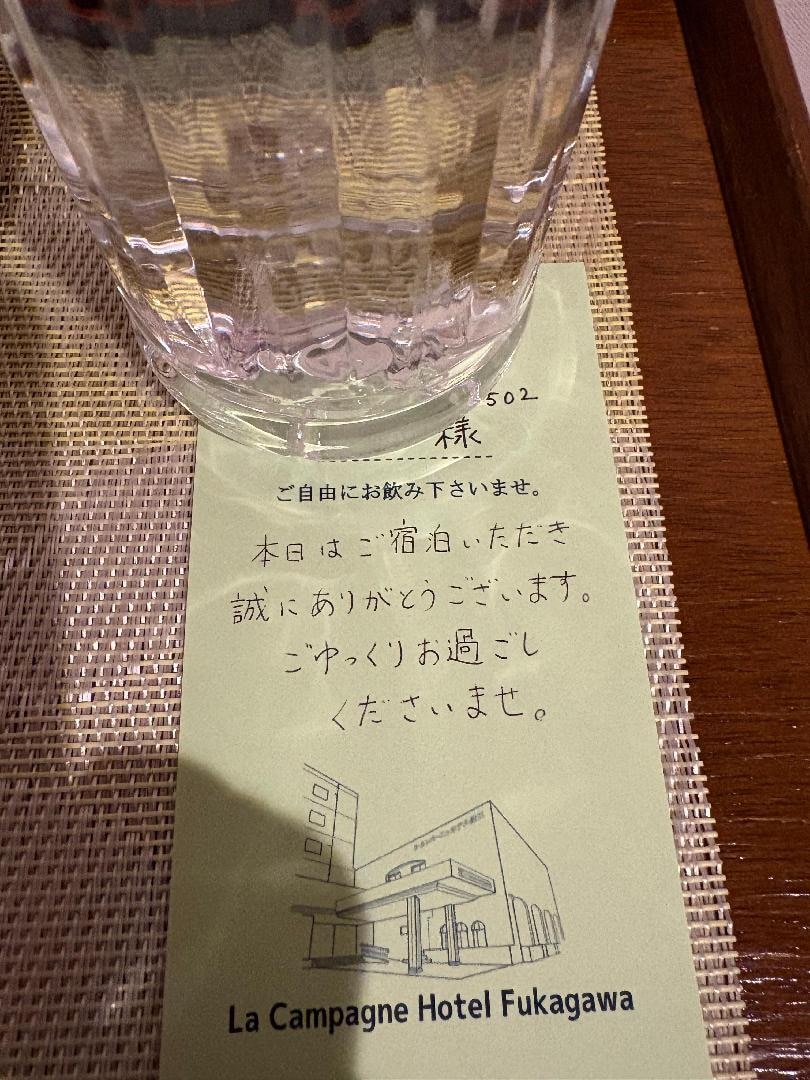 502
様
ご自由にお飲み下さいませ。
本日はご宿泊いただき
誠にありがとうございます。
ごゆっくりお過ごし
くださいませ。
La Campagne Hotel Fukagawa